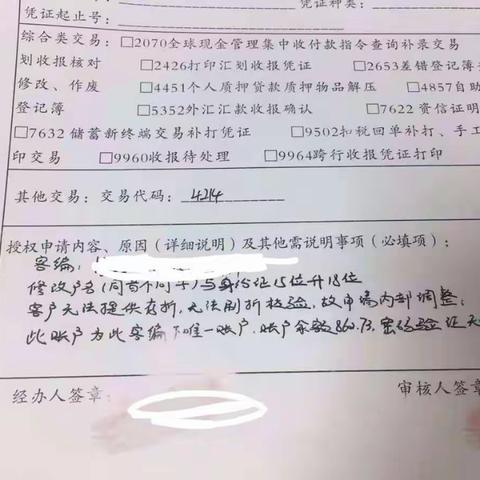 凭证种类：
凭证起止号：
综合类交易：□2070全球现金管理集中收付款指令查询补录交易
划收报核对 □2426打印汇划收报凭证 □2653差错登记簿
修改、作废 □4451个人质押贷款质押物品解压 □4857自助
登记簿 □5352外汇汇款收报确认 □7622资信证明
□7632 储蓄新终端交易补打凭证 □9502扣税回单补打、手工
印交易 □9960收报待处理 □9964跨行收报凭证打印
其他交易：交易代码：4214
授权申请内容、原因（详细说明）及其他需说明事项（必填项）：
客编：
修改户名(同音不同字)与身份证15位升18位
客户无法提供存折，无法刷折核验，故申请内部调整；
此账户为此客编下唯一账户，账户余额860.73，密码验证无
经办人签章： 审核人签章